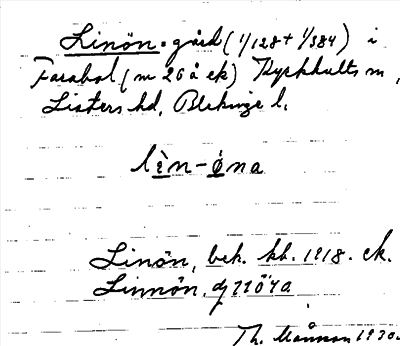 Linön. gård (1/128 + 1/384) i
Farabol (m 26 å ek) Kyrkhults sn,
Listers hd, Blekinge l.
lìn-öna
Linön, bek. kb. 1918. ek.
Linnön.
Th. Månsson 1930.